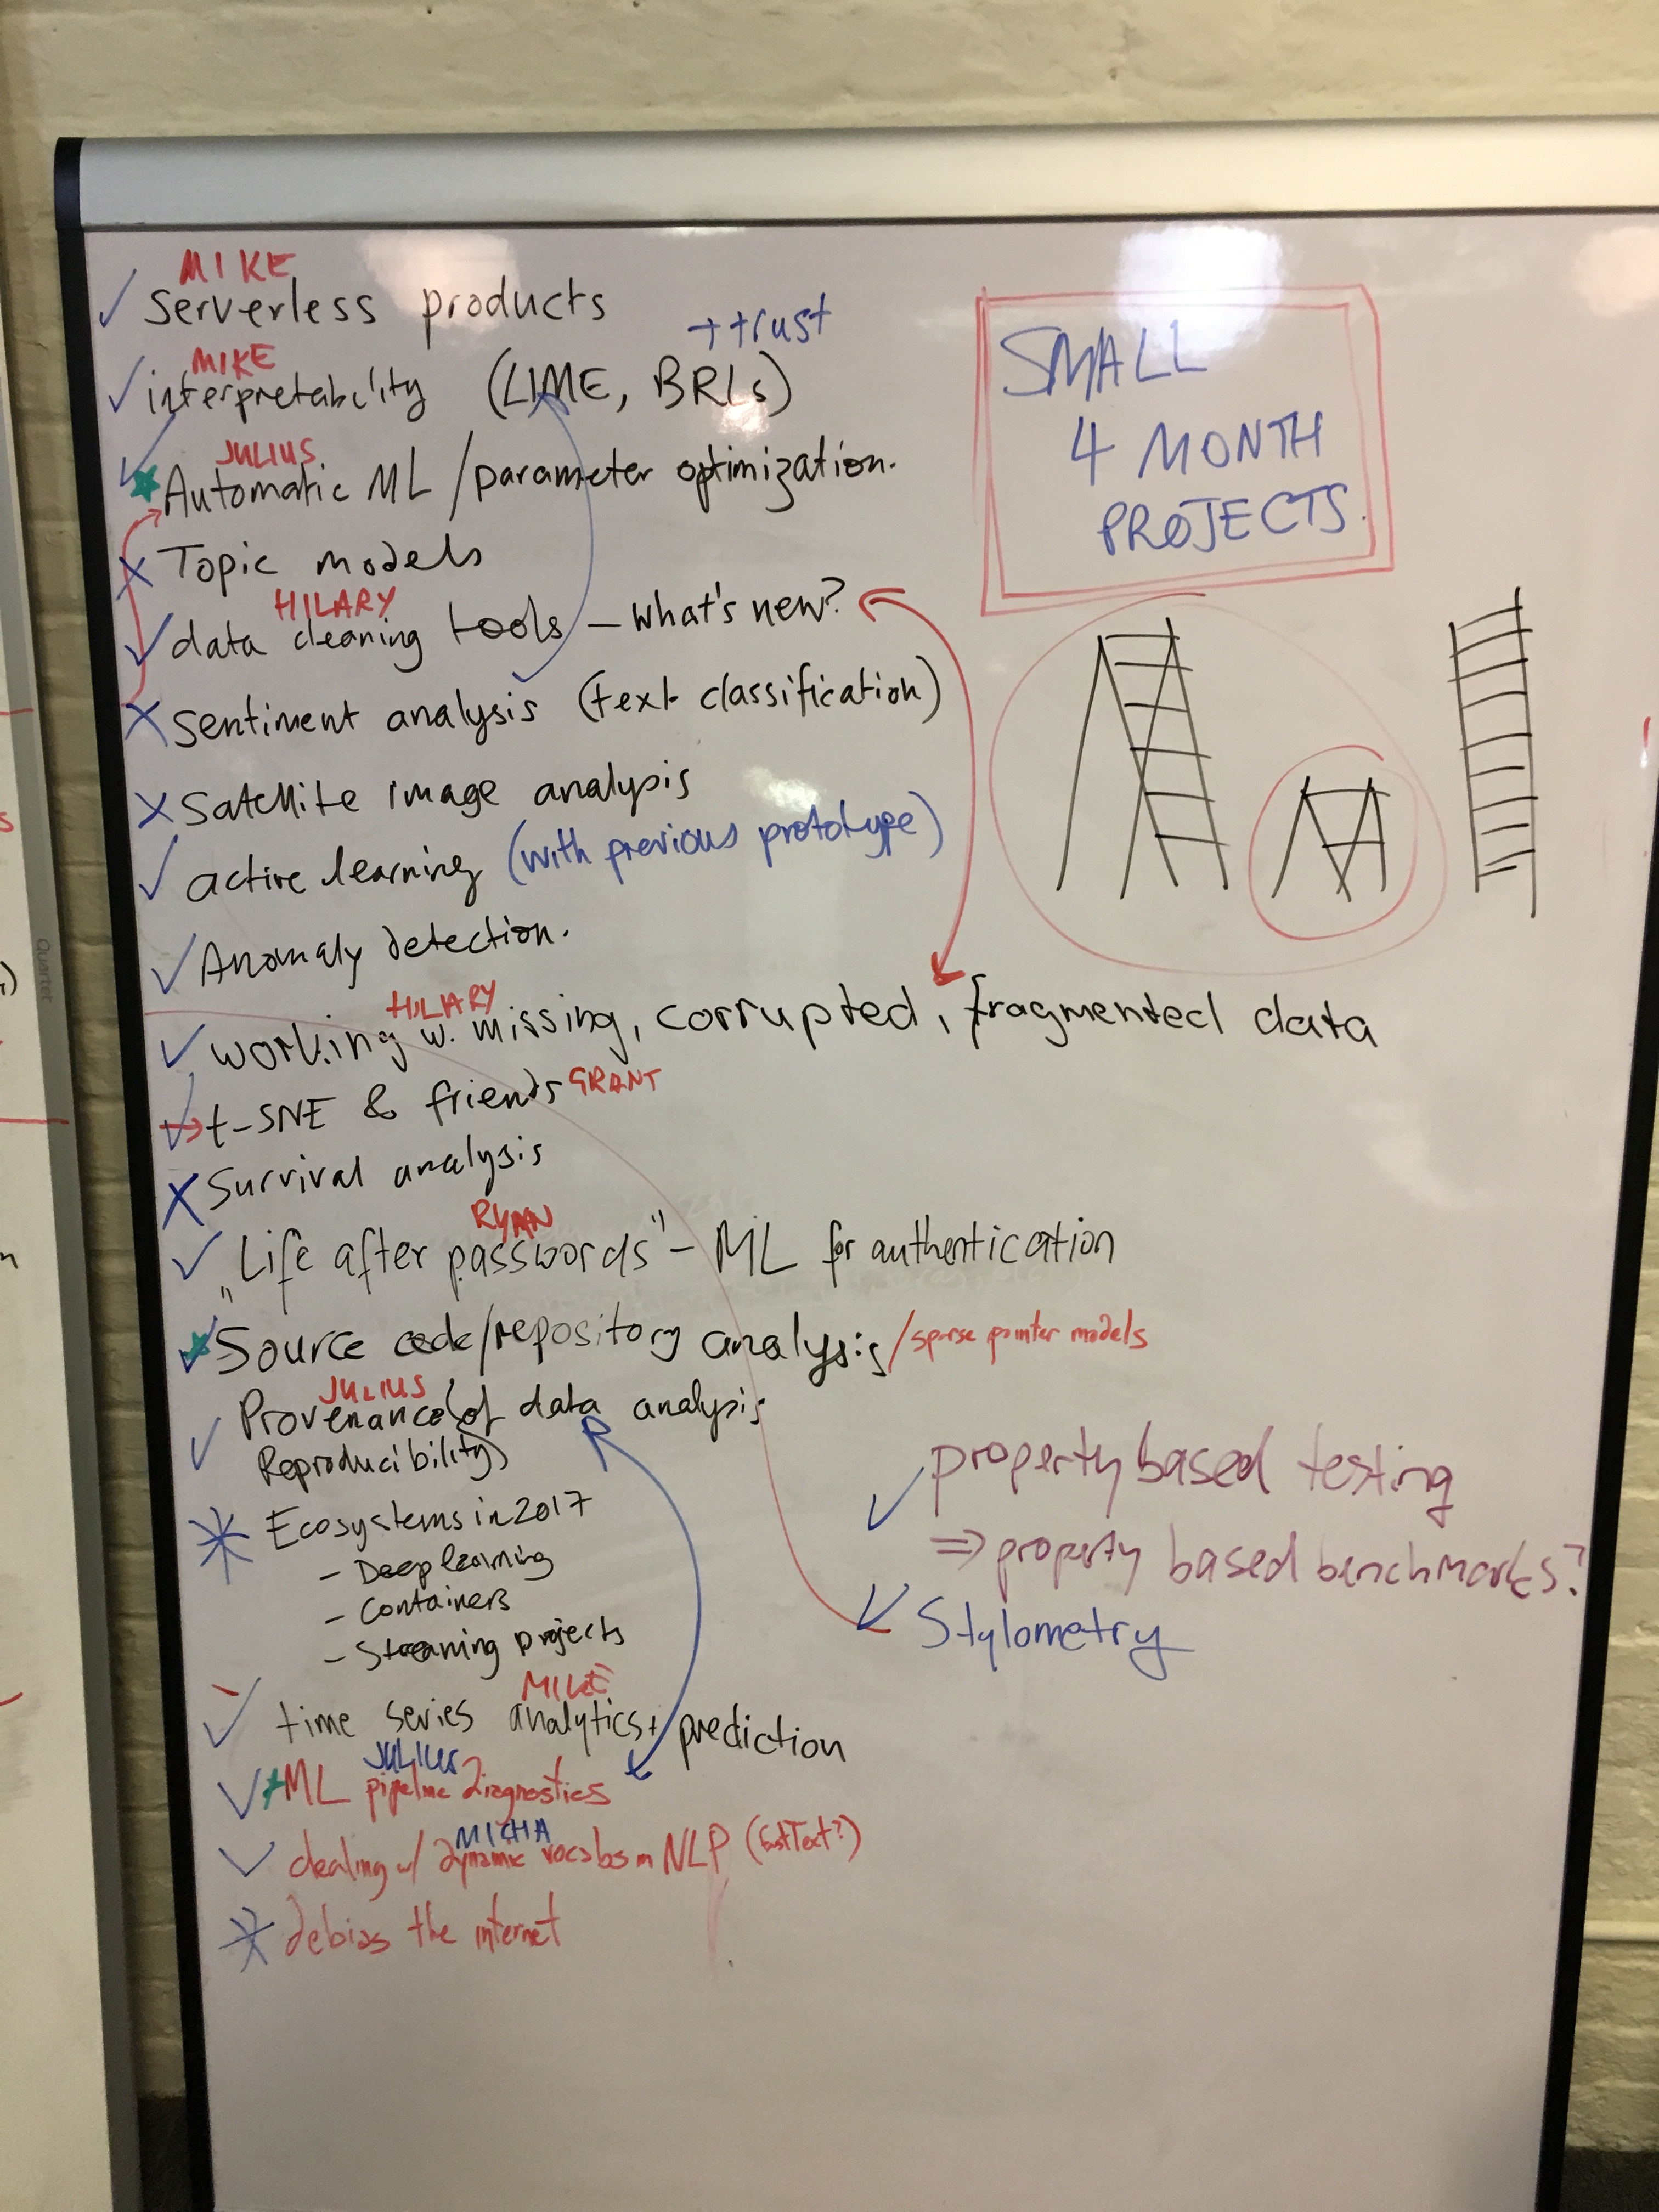 MIKE
serverless products
+ trust
MIKE
interpretability (LIME, BRLs)
JULIUS
Automatic ML / parameter optimization.
Topic models
HILARY
data cleaning tools – what's new?
sentiment analysis (text classification)
Satellite image analysis
active learning (with previous prototype)
Anomaly detection.
HILARY
working w. missing, corrupted, fragmented data
t-SNE & friends GRANT
Survival analysis
RYAN
„Life after passwords" – ML for authentication
Source code/repository analysis / sparse pointer models
JULIUS
Provenance of data analysis
Reproducibility
Ecosystems in 2017
- Deep learning
- Containers
- Streaming projects
MIKE
time series analytics + prediction
JULIUS
+ML pipeline diagnostics
MICHA
dealing w/ dynamic vocabs in NLP (fastText?)
debias the internet
SMALL
4 MONTH
PROJECTS.
property based testing
⇒ property based benchmarks?
Stylometry
Quartet